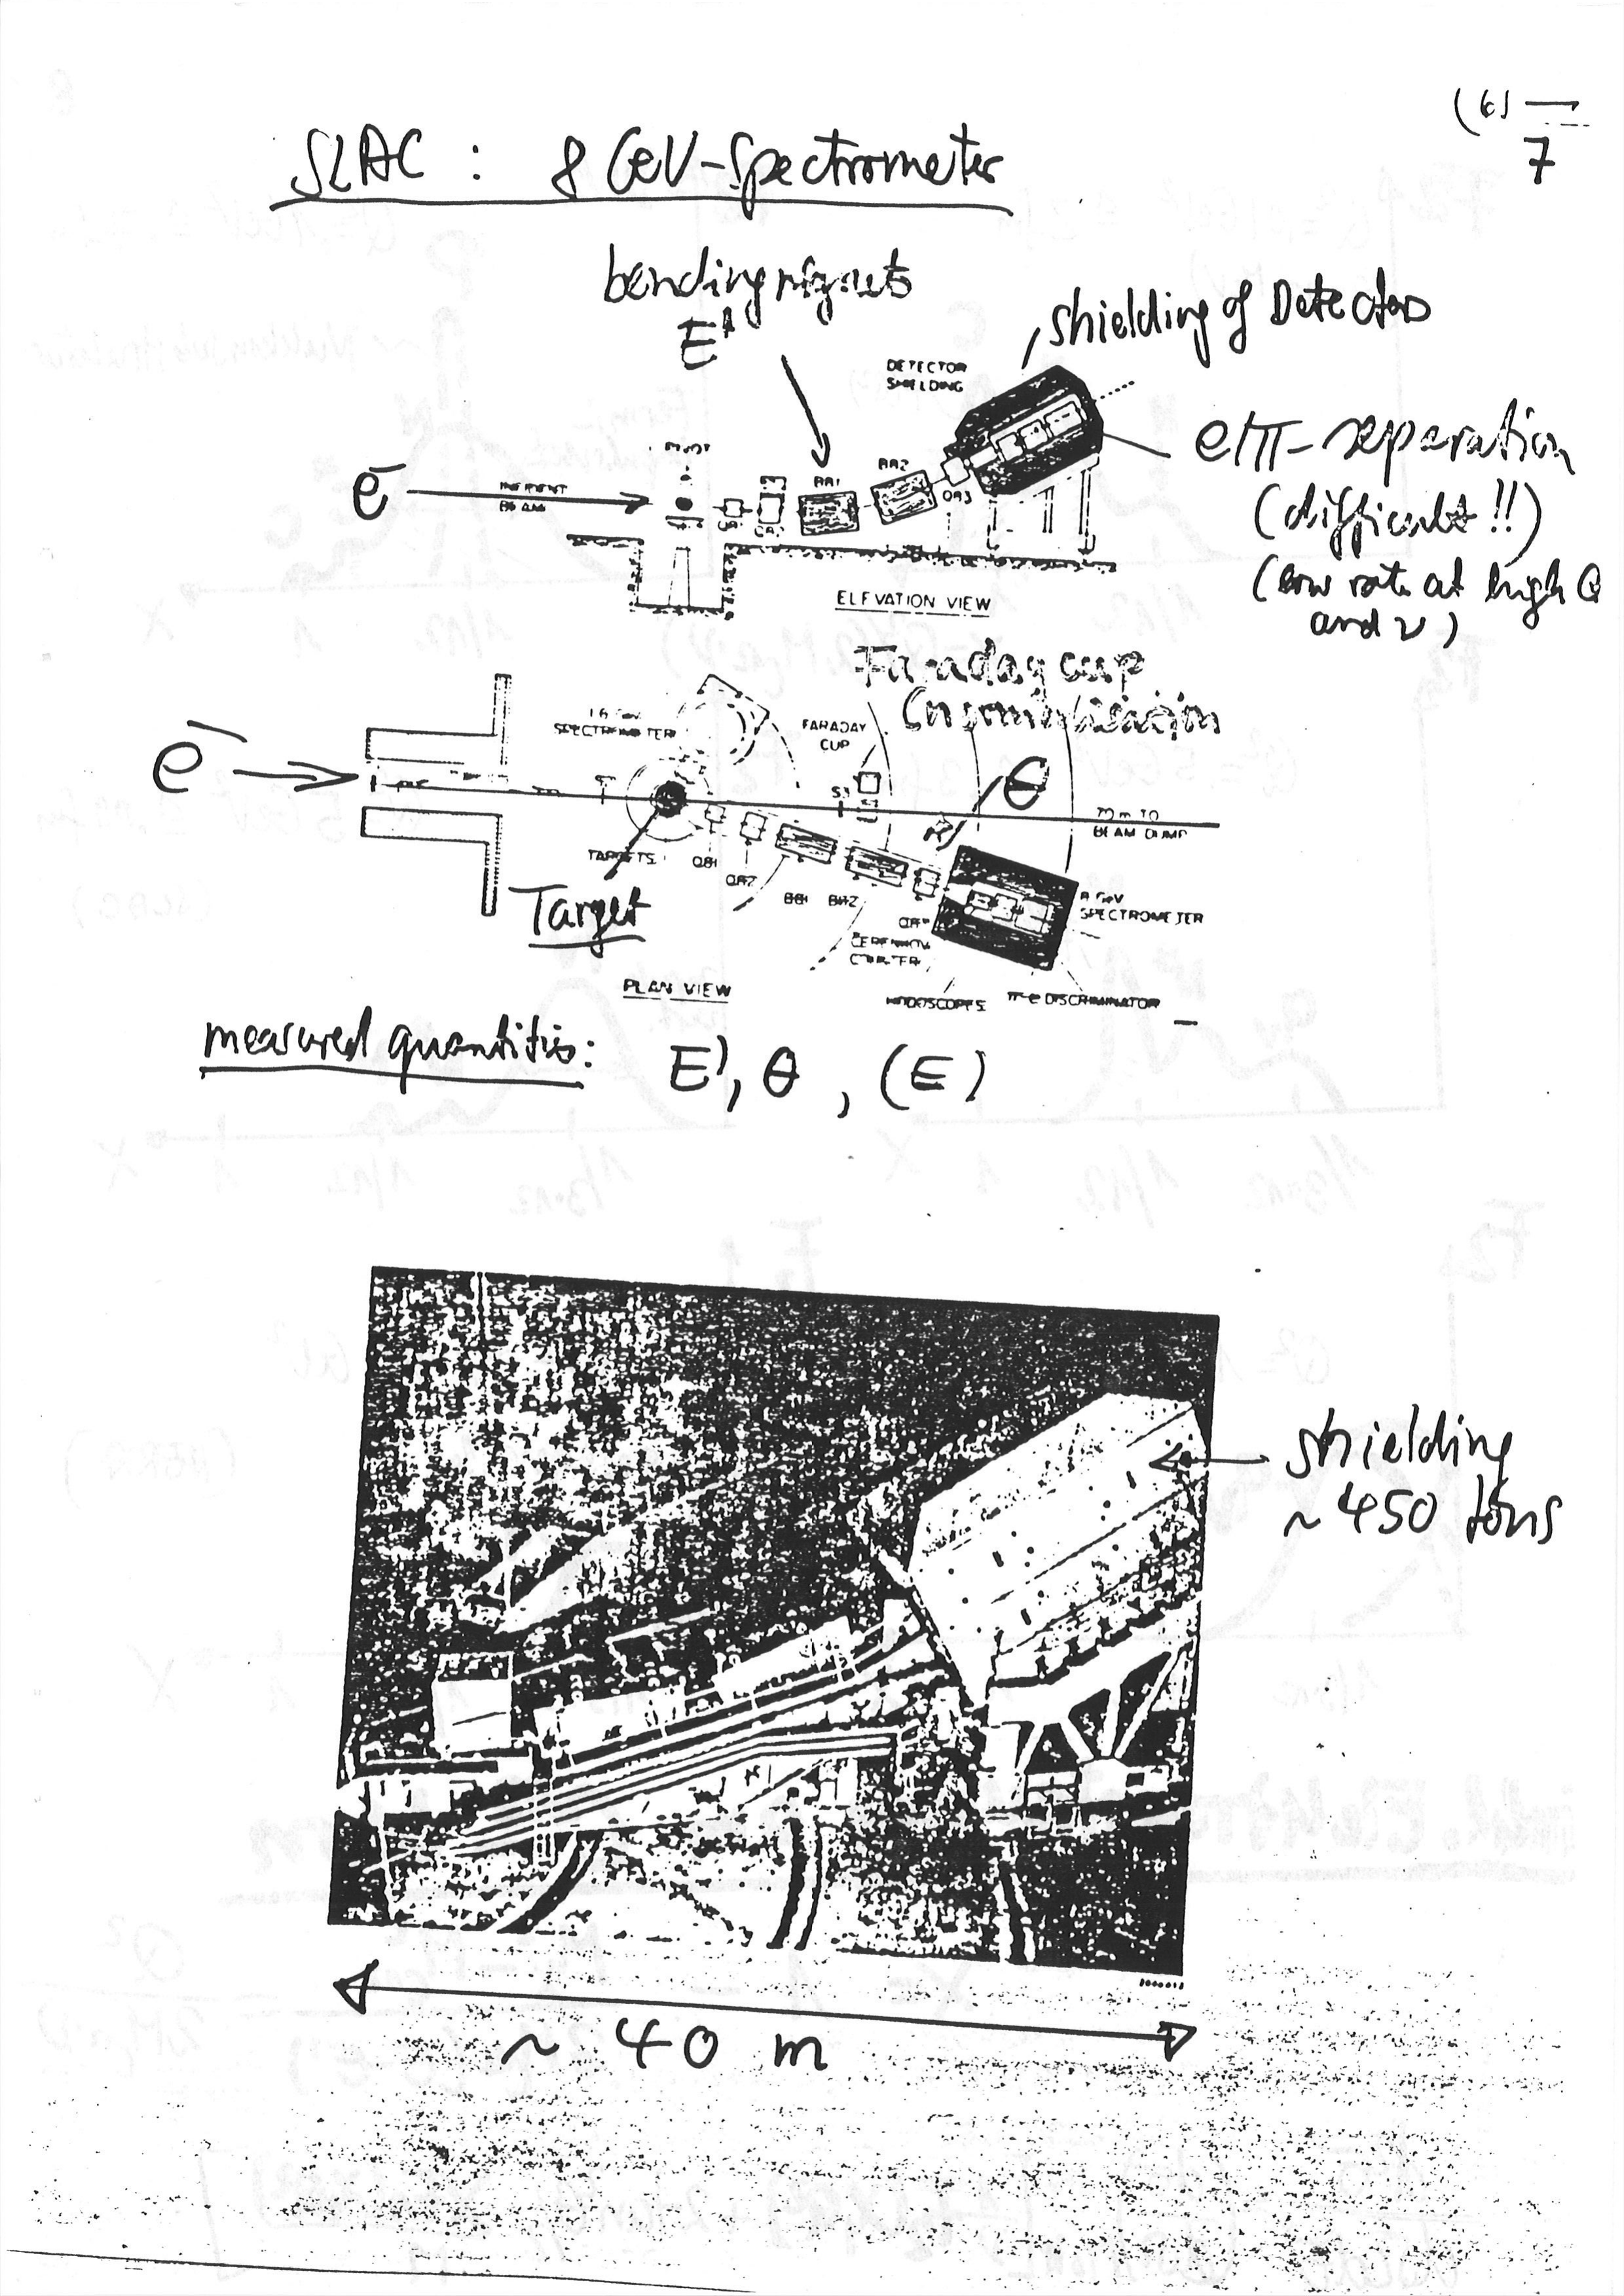 (6)
7
SLAC : 8 GeV-Spectrometer
bending magnets
E'
shielding of Detectors
DETECTOR
SHIELDING
e/π-separation
(difficult !!)
(low rate at high Q
and ν)
PIVOT
e⁻
INCIDENT
BEAM
BB1
BB2
QB3
ELEVATION VIEW
Faraday cup
(normalisation
1.6 GeV
SPECTROMETER
FARADAY
CUP
e⁻
θ
70 m TO
BEAM DUMP
TARGETS
QB1
QB2
BB1
BB2
Target
8 GeV
SPECTROMETER
CERENKOV
COUNTER
PLAN VIEW
HODOSCOPES
π-e DISCRIMINATOR
measured quantities: E', θ, (E)
shielding
~ 450 tons
~ 40 m